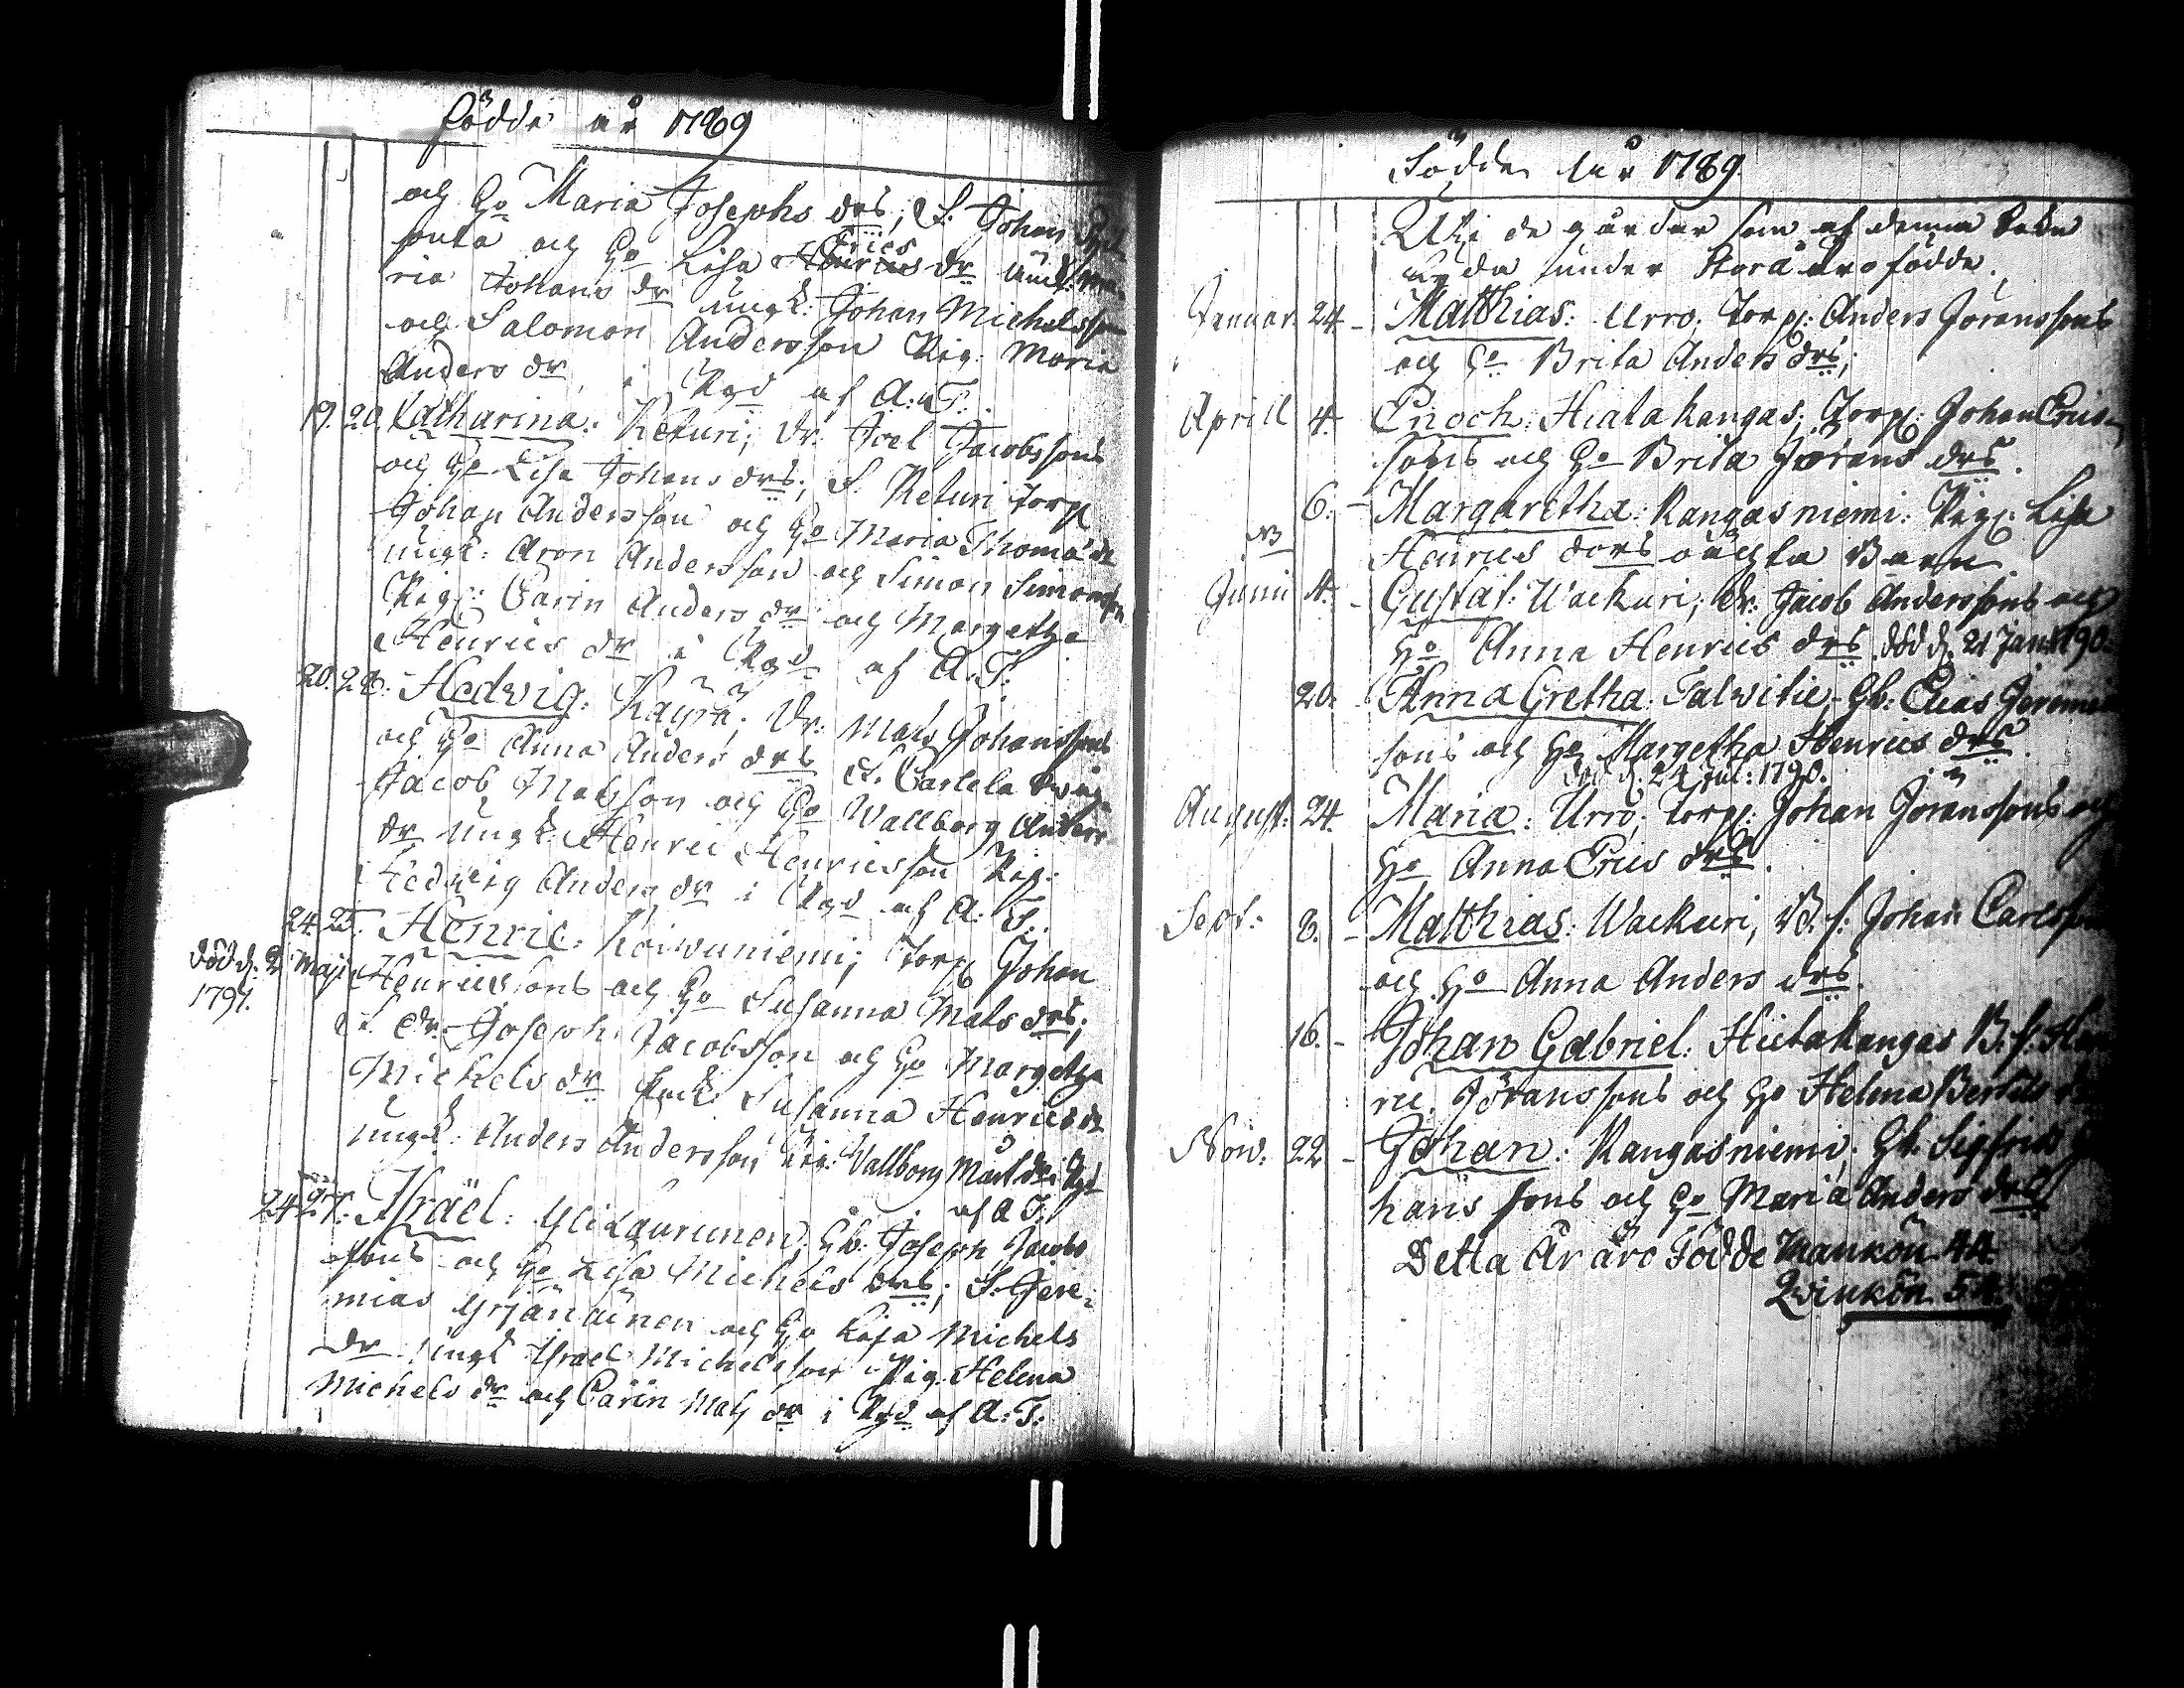 födde år 1789
och Ho Maria Josephs drs; S. Johan
och Ho Lisa Erics Henrics dr
ria Johans dr ungk: Johan Michelsson
och Salomon Andersson Pig: Maria
Anders dr i Kgd af A: T:
19. 20. Katharina: Keturi; Dr. Joel Jacobssons
och Ho Lisa Johans drs; S. Keturi torp
Johan Andersson och Ho Maria Thomæ dr
ungk: Aron Andersson och Simon Simonsson
Pig: Carin Anders dr och Margetha
Henrics dr i Kgd af A. T:
20. 22. Hedvig: Käyrä: Dr: Mats Johanssons
och Ho Anna Anders drs S. Carlela
Jacob Matsson och Ho Wallborg Anders
dr ungk: Henric Henricsson Pig:
Hedwig Anders dr i Kgd af A: T.
24. 25. Henric: Koiwuniemi; Torp Johan
död d. 2 Maji Henricssons och Ho Susanna Mats drs;
1791.
S. Dr. Joseph Jacobsson och Ho Margetha
Michels dr Susanna Henrics dr
ungk: Anders Andersson Pig: Wallborg Mats dr i Kgd
af A T:
24 27. Israël: Ylilaurunen; Gb: Joseph Jacobs
sons och Ho Lisa Michels drs; S. Jere-
mias Yrjänäinen och Ho Lisa Michels
dr ungk Israel Michelsson Pig: Helena
Michels dr och Carin Mats dr i Kgd af A: T:
Födde år 1789.
Uti de gårdar som af denna
under Storå äro födde.
Januar. 24. Matthias: Urro; Torp: Anders Joranssons
och Ho Brita Anders drs;
Aprill 4. Enoch: Hiatakangas; Torp: Johan Erics-
sons och Ho Brita Jörans drs.
6. Margaretha: Kangasniemi: Pig: Lisa
NB Henrics dors oächta Barn.
Junii 4. Gustaf: Wackuri; Dr: Jacob Anderssons och
Ho Anna Henrics drs. död d. 21 Jan: 1790.
20. Anna Gretha: Talwitie; Gb: Elias Jeremiæ
sons och Ho Margetha Henrics drs.
död d. 24 Jul: 1790.
August: 24. Maria: Urro; Torp: Johan Joranssons och
Ho Anna Erics drs.
Sept: 8. Matthias: Wackuri; B. f: Johan Carlssons
och Ho Anna Anders drs.
16. Johan Gabriel: Hietakangas B. f: Hen
ric Jöranssons och Ho Helena Bertils
Nov: 22 Johan: Kangasniemi; Gb. Sigfrid Jo
hans sons och Ho Maria Anders drs
Detta År äro Födde Mankön 44.
Qvinkön 54.